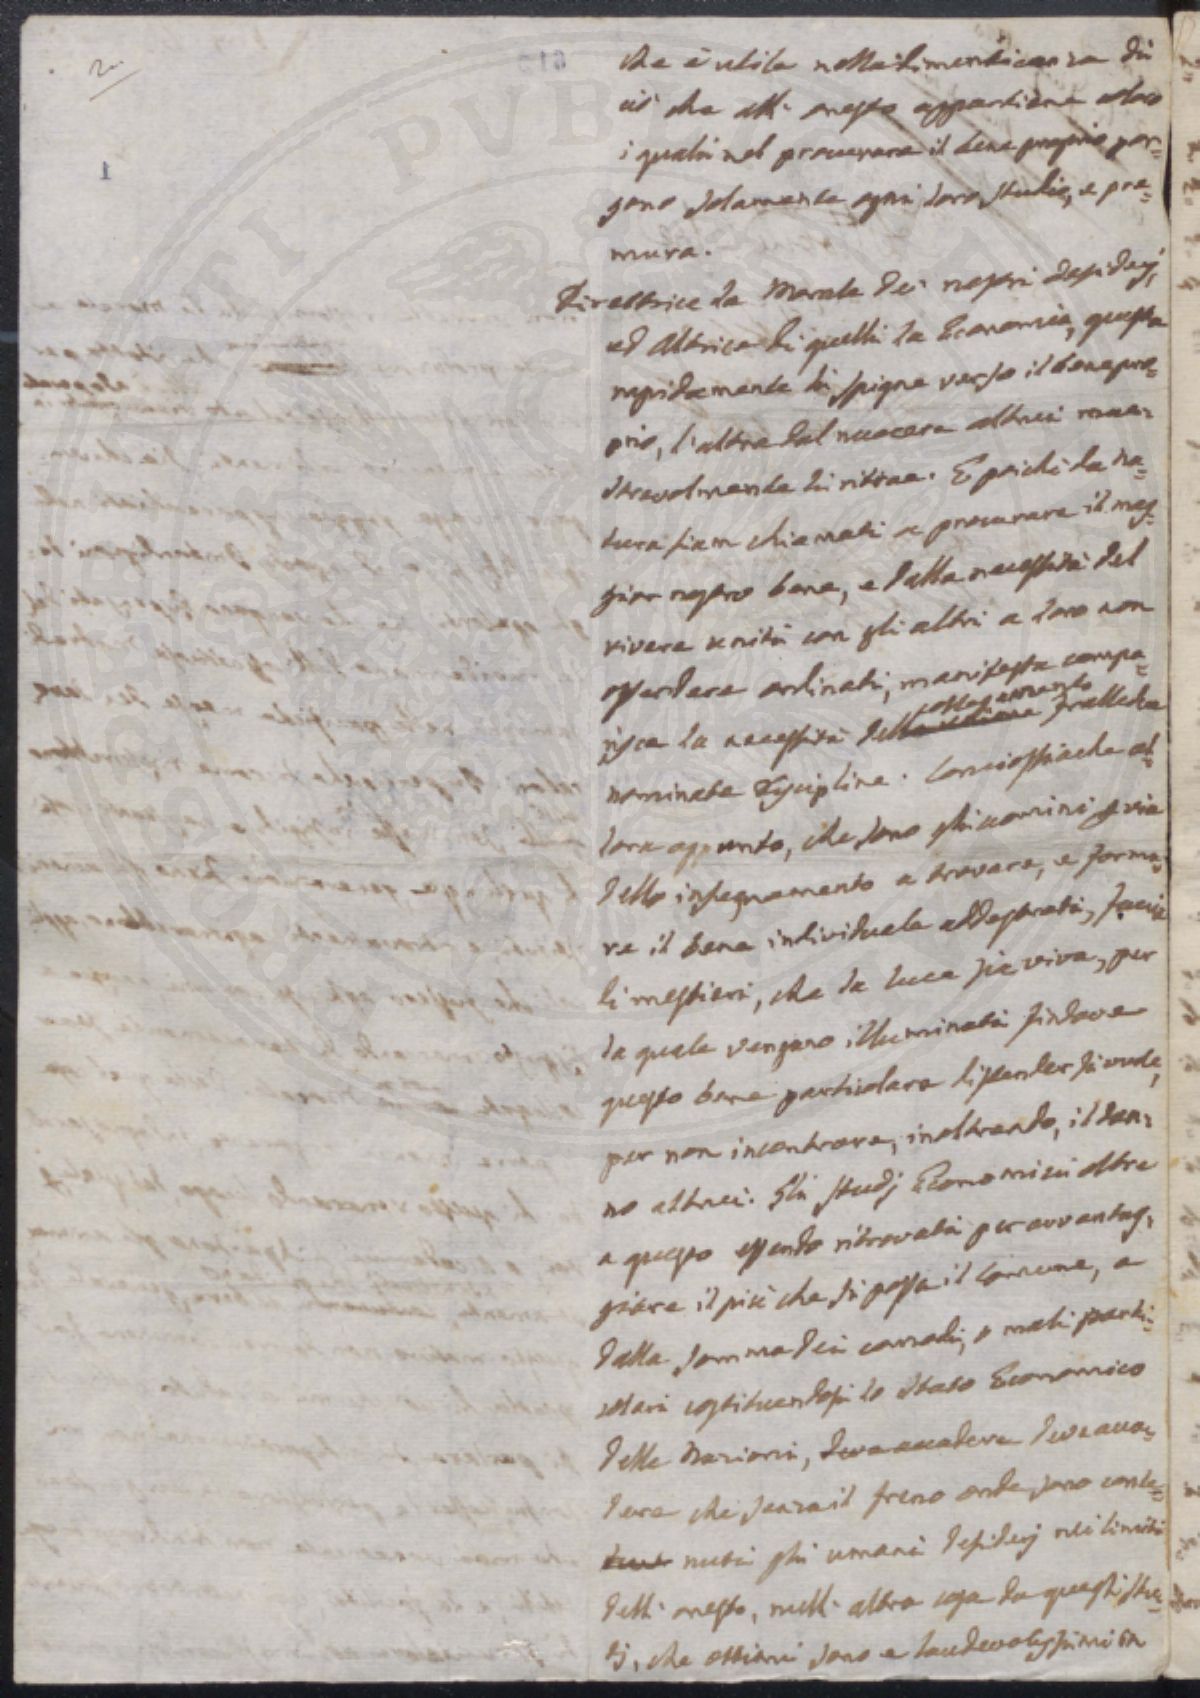 2.
1
che è utile nella dimenticanza di
ciò che all'onesto appartiene coloro
i quali nel procurare il bene proprio por-
gono solamente ogni loro studio, e pre-
mura.
Direttrice la Morale dei nostri desiderj,
ed Altrice di quelli la Economia, questa
rapidamente li spigne verso il bene pro-
prio, l'altra dal nuocere altrui mae-
strevolmente li ritrae. E poichè da na-
tura siam chiamati a procurare il mag-
gior nostro bene, e dalla necessità del
vivere uniti con gli altri a loro non
offendere ordinati, manifesta compa-
risce la necessità dell' delle due
nominate Discipline. Conciossiache al-
lora appunto, che sono gli uomini per via
dello insegnamento a trovare, e forma-
re il bene individuale addestrati,
li mestieri, che la luce sia viva, per
la quale vengano illuminati fin dove
questo bene particolare si stender si vuole,
per non incontrare, inoltrando, il dan-
no altrui. Gli studj Economici oltre
a questo essendo ritrovati per avvantag-
giare il più che si possa il Comune, e
dalla somma dei comodi, o mali parti-
colari costituendosi lo stato Economico
delle Nazioni, deve accadere
che senza il freno onde sono conte-
nuti gli umani desiderj nei limiti
dell'onesto, null'altra cosa da questi stu-
dj, che ottimi sono e laudevolissimi in